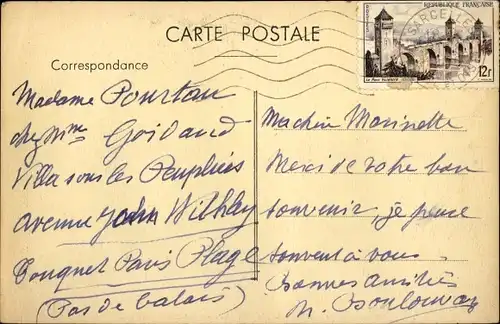 CARTE POSTALE
Correspondance
REPUBLIQUE FRANÇAISE
12F
SARCELLES
Madame Pourtau
chez Mme
Villa sous les Peupliers
avenue John Withley
Touquet Paris Plage
(Pas de Calais)
Ma chère Marinette
Merci de votre bon
souvenir, je pense
souvent à vous.
Bonnes amitiés